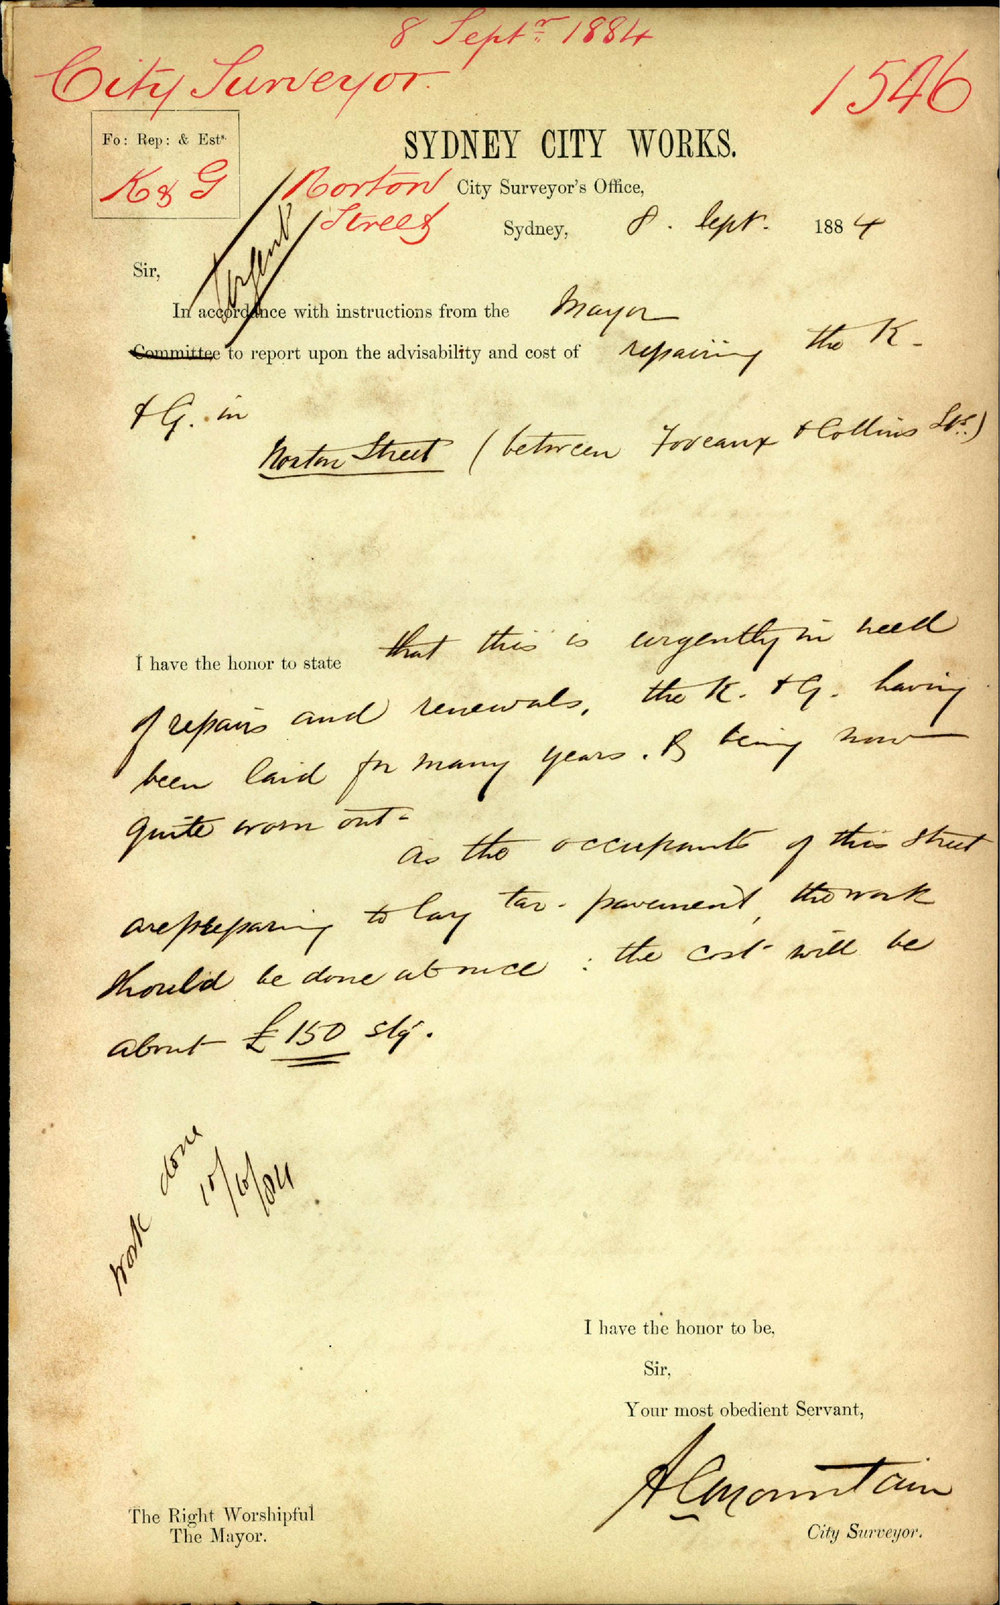 8 Septr. 1884
City Surveyor.
1546
Fo: Rep: & Ests.
K & G
SYDNEY CITY WORKS.
Norton
Street
City Surveyor's Office,
Sydney, 8. Sept. 1884
Urgent
Sir,
In accordance with instructions from the Mayor
Committee to report upon the advisability and cost of repairing the K.
& G. in
Norton Street (between Foveaux & Collins Sts.)
I have the honor to state that this is urgently in need
of repairs and renewals, the K. & G. having
been laid for many years. & being now
quite worn out-
As the occupants of this street
are preparing to lay tar-pavement, the work
should be done at once: the cost will be
about £150 stg.
Work done
10/10/84
I have the honor to be,
Sir,
Your most obedient Servant,
A C Mountain
City Surveyor.
The Right Worshipful
The Mayor.